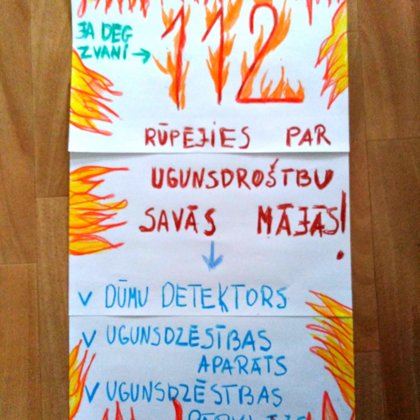 JA DEG
ZVANI → 112
RŪPĒJIES PAR
UGUNSDROŠTBU
SAVĀS MĀJĀS!
↓
V DŪMU DETEĶTORS
V UGUNSDZĒSĪBAS
APARĀTS
V UGUNSDZĒSĪBAS